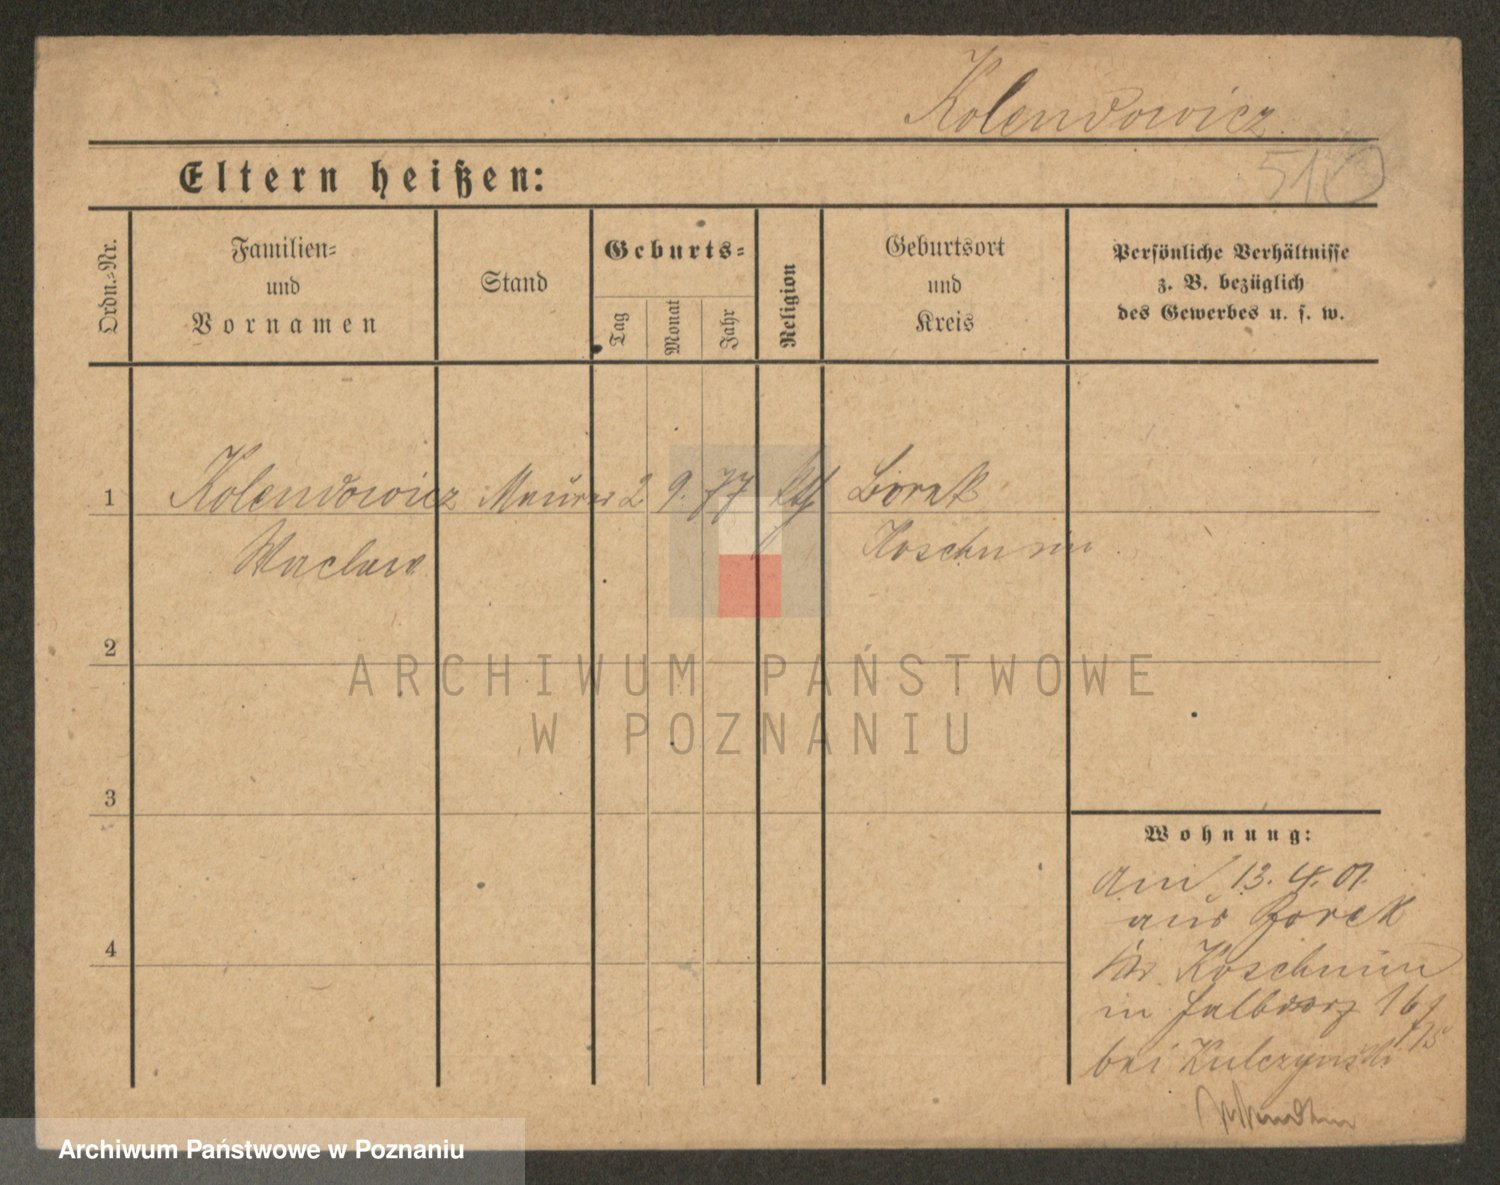 Kolendowicz
510
Eltern heißen:
Ordn.-Nr.
Familien-
und
Vornamen
Stand
Geburts-
Tag
Monat
Jahr
Religion
Geburtsort
und
Kreis
Persönliche Verhältnisse
z. B. bezüglich
des Gewerbes u. s. w.
1 Kolendowicz Maurer 2 9. 77 kth Borek
Waclaw Koschmin
2
3
4
Wohnung:
Am 13. 4. 01.
aus Borek
Kr. Koschmin
in Halbdorf 16
bei Kulczynski
ARCHIWUM PAŃSTWOWE
W POZNANIU
Archiwum Państwowe w Poznaniu